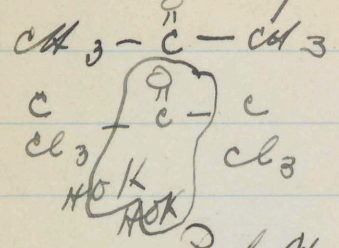 O
"
CH3 — C — CH3
O
"
C — C — C
Cl3 Cl3
HOK
HOK